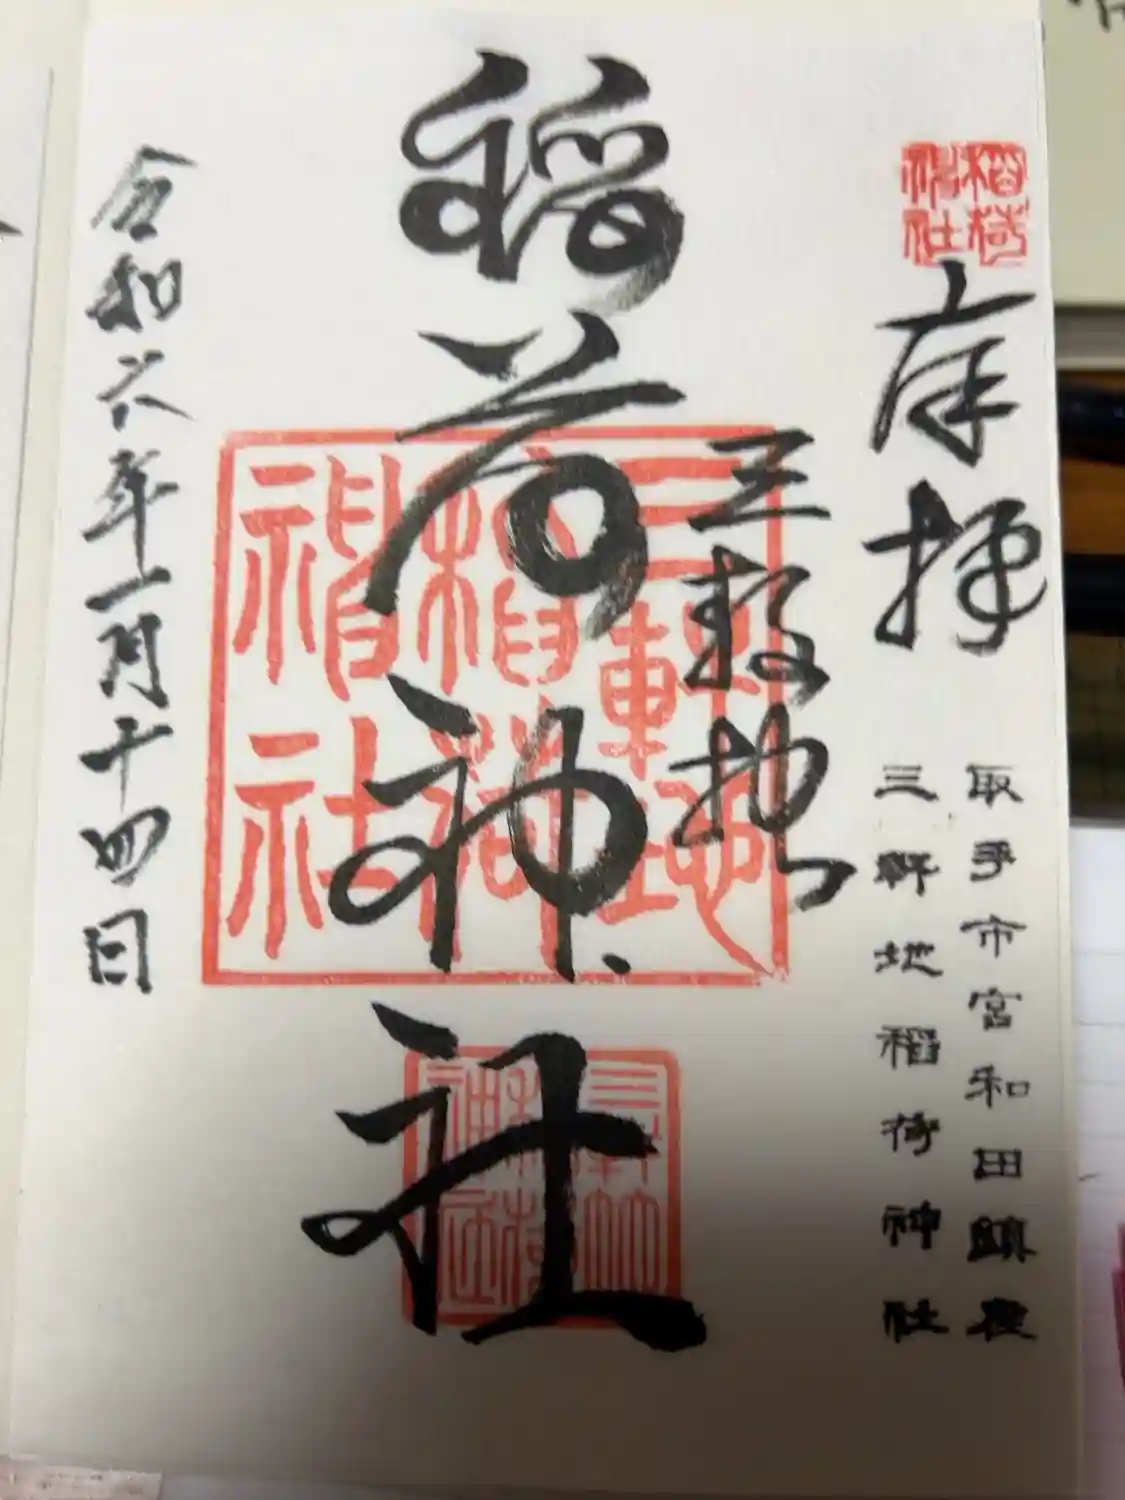 稲荷神社
奉拝
取手市宮和田鎮座
三軒地稲荷神社
三軒地
稲荷神社
三軒地
稲荷
神社
三軒地
稲荷
神社
令和六年一月十四日